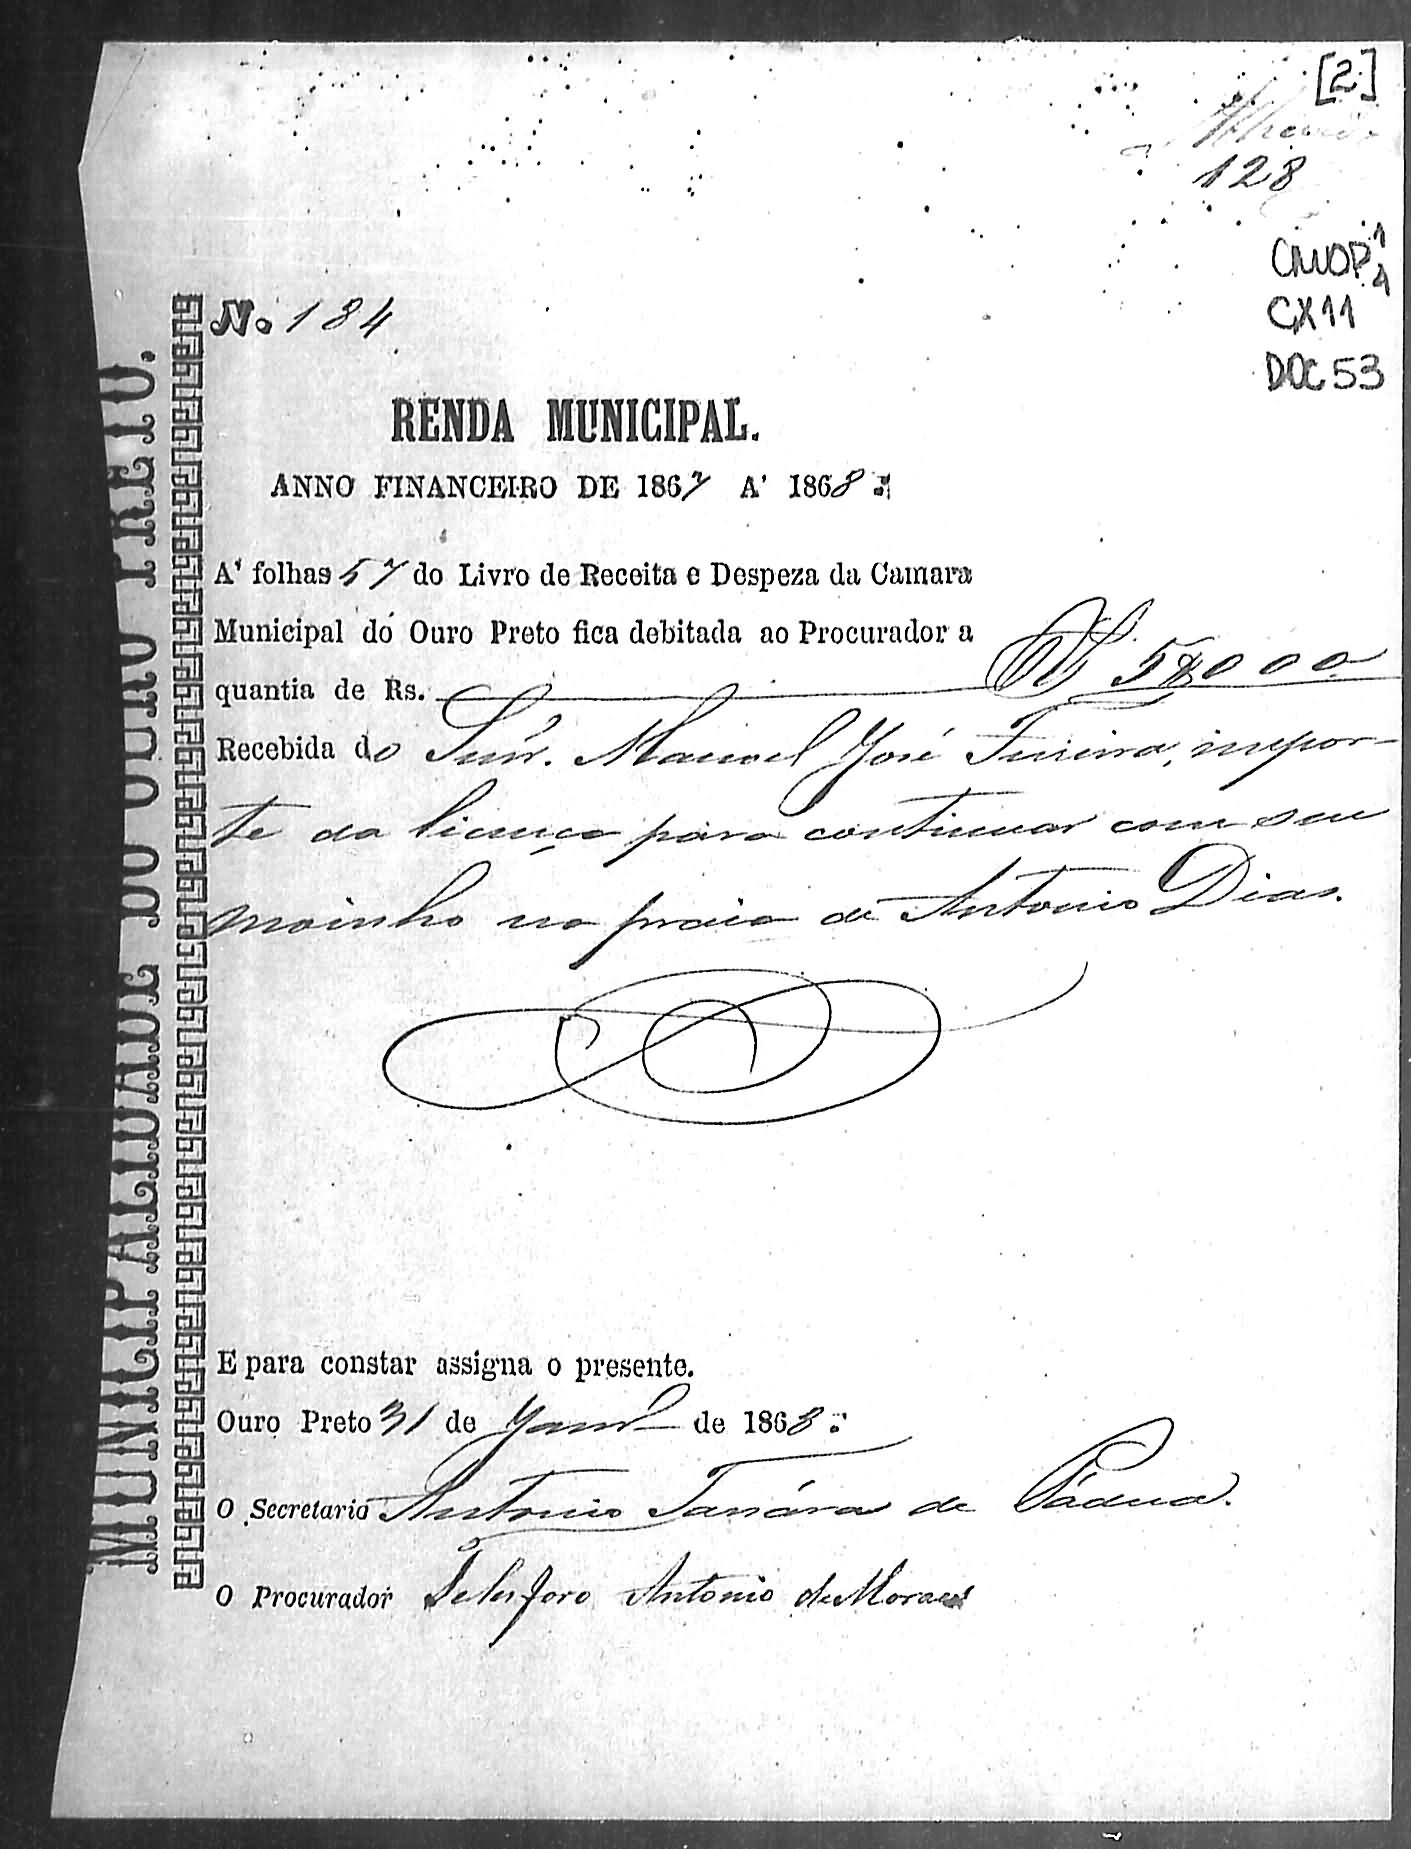 [2]
128
CMOP 1
4
CX11
DOC 53
MUNICIPALIDADE DO OURO PRETO.
N.o 184
RENDA MUNICIPAL.
ANNO FINANCEIRO DE 1867 A' 1868.
A' folhas 57 do Livro de Receita e Despeza da Camara
Municipal do Ouro Preto fica debitada ao Procurador a
quantia de Rs. 5$000
Recebida do Snr. Manoel José Ferreira, impor-
te da licença para continuar com seu
moinho na praia de Antonio Dias.
E para constar assigna o presente.
Ouro Preto 31 de Janro de 1868.
O Secretario Antonio de Pádua.
O Procurador Telesforo Antonio de Moraes